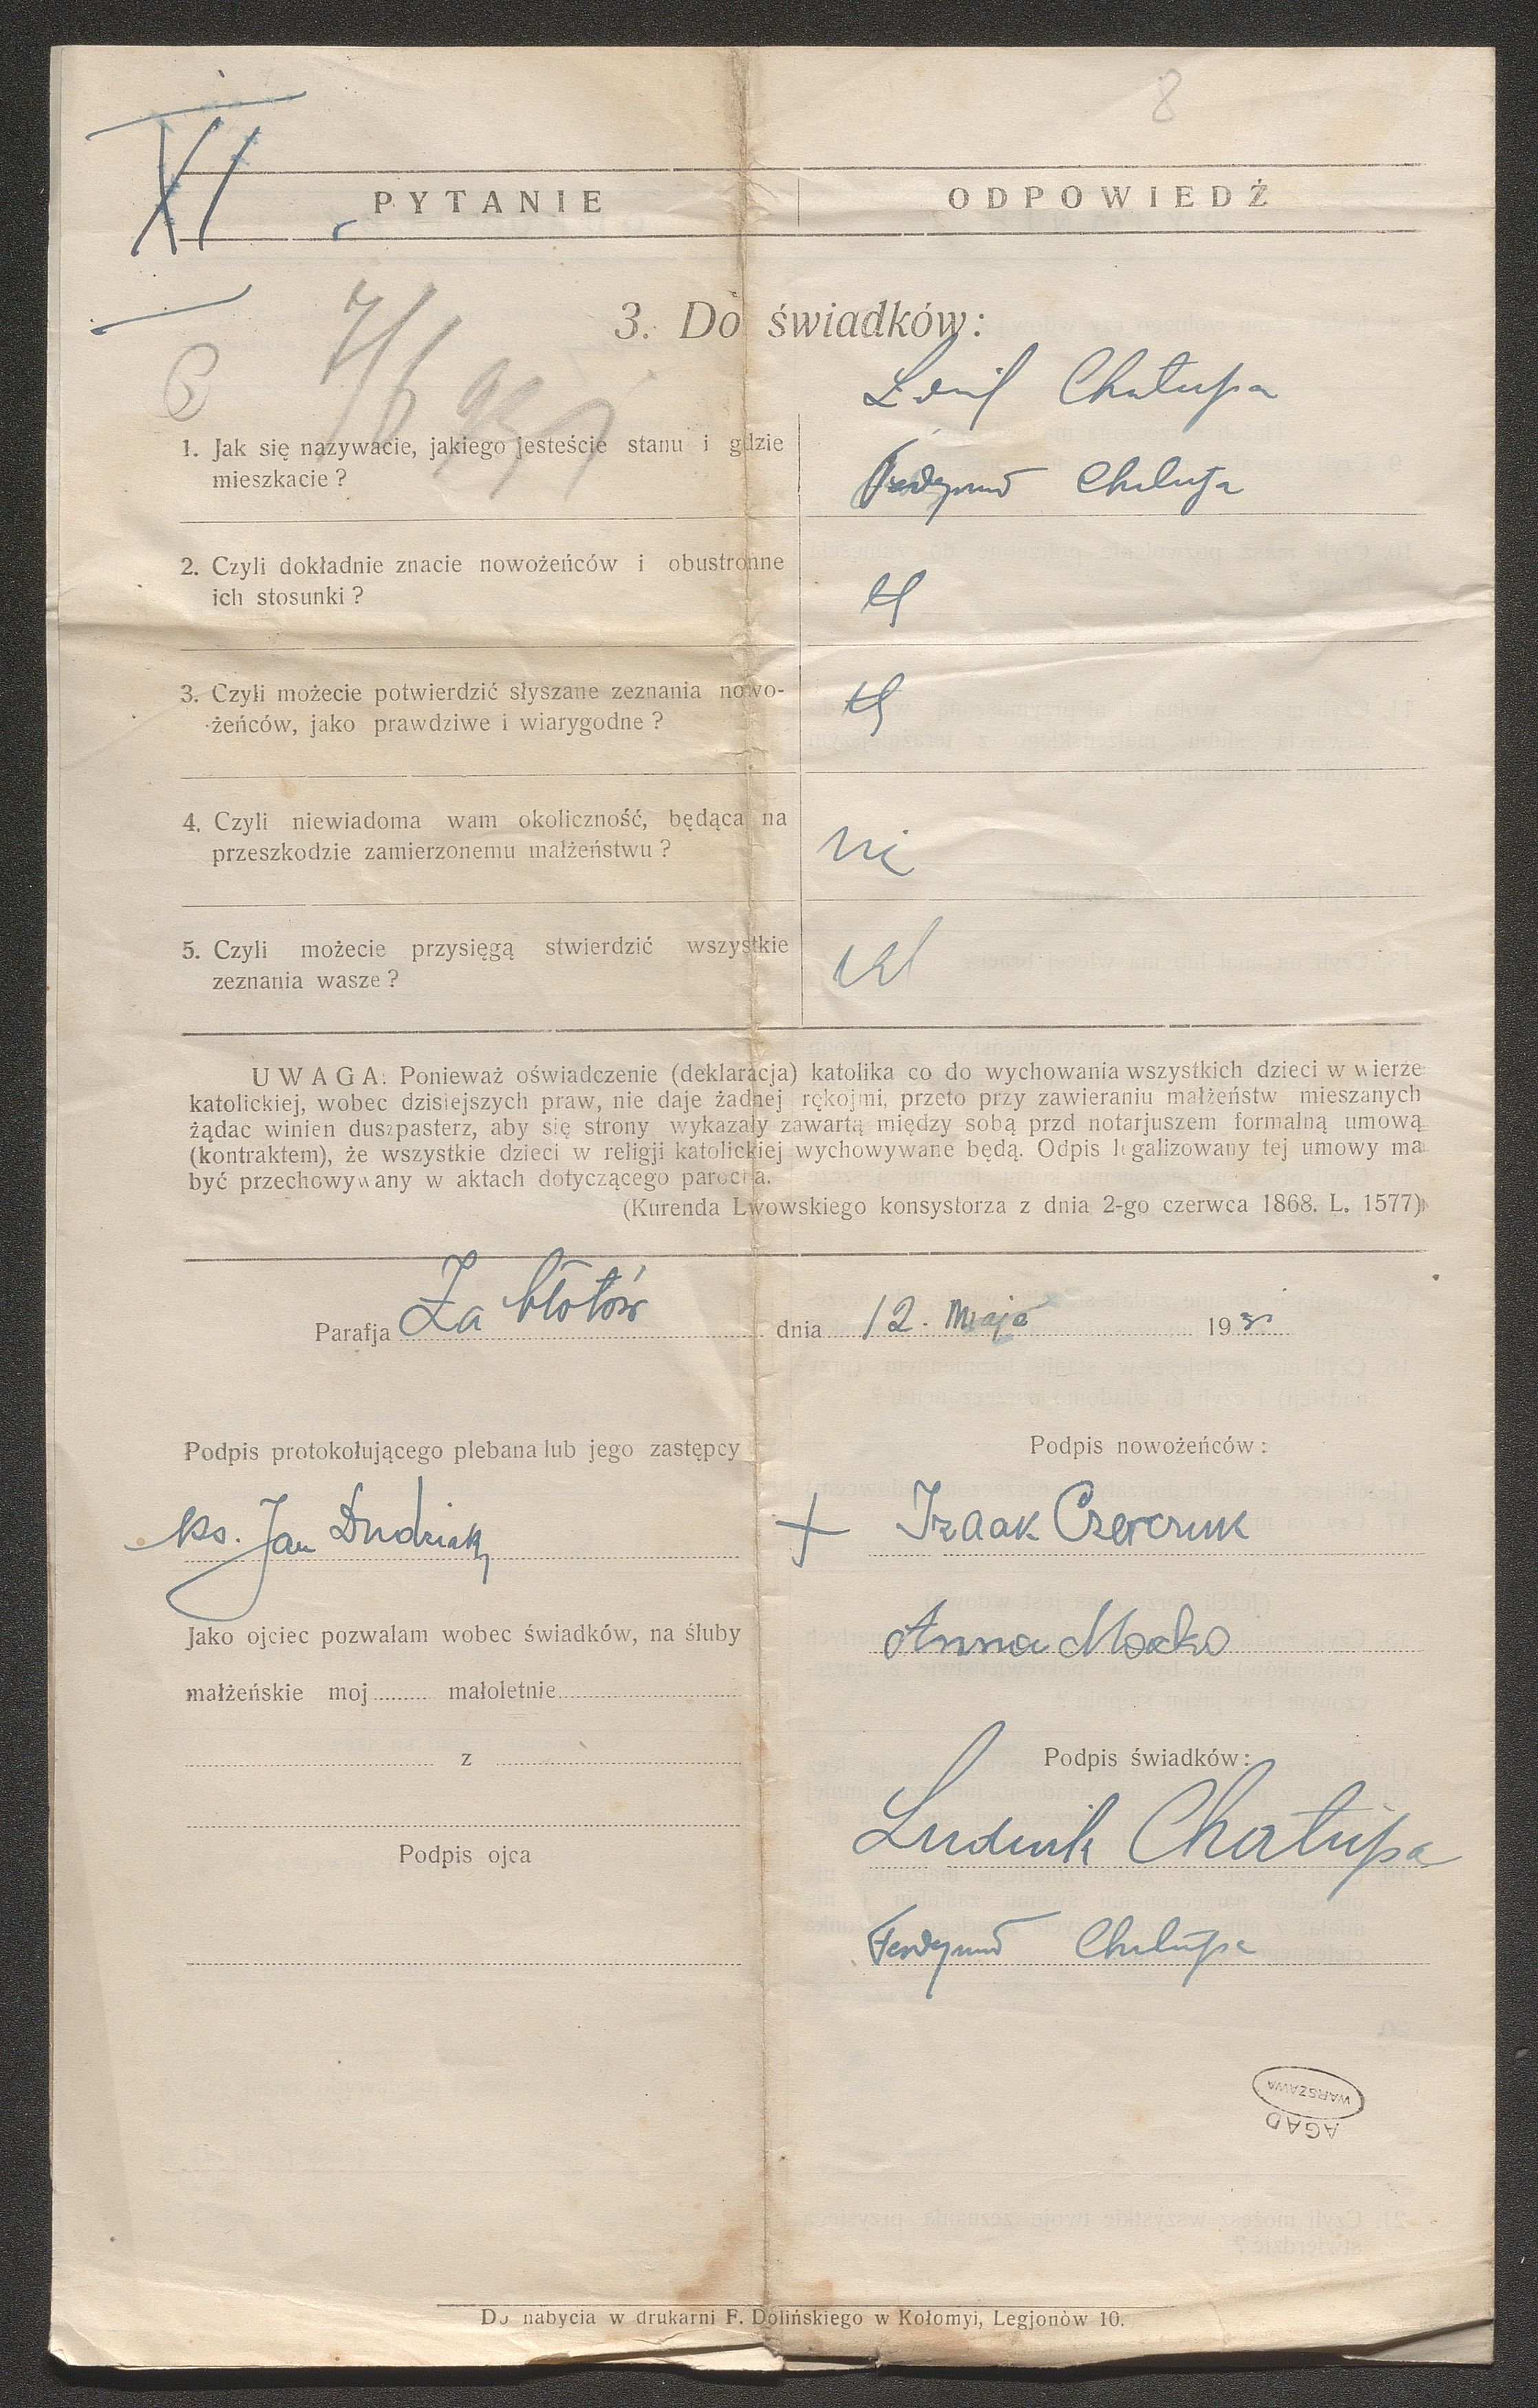 8
XI
PYTANIE
ODPOWIEDŹ
3. Do świadków:
7/6 931
Chałupa
1. Jak się nazywacie, jakiego jesteście stanu i gdzie
mieszkacie?
Ferdynand Chałupa
2. Czyli dokładnie znacie nowożeńców i obustronne
ich stosunki?
3. Czyli możecie potwierdzić słyszane zeznania nowo-
żeńców, jako prawdziwe i wiarygodne?
4. Czyli niewiadoma wam okoliczność, będąca na
przeszkodzie zamierzonemu małżeństwu?
nie
5. Czyli możecie przysięgą stwierdzić wszystkie
zeznania wasze?
UWAGA: Ponieważ oświadczenie (deklaracja) katolika co do wychowania wszystkich dzieci w wierze
katolickiej, wobec dzisiejszych praw, nie daje żadnej rękojmi, przeto przy zawieraniu małżeństw mieszanych
żądac winien duszpasterz, aby się strony wykazały zawartą między sobą przd notarjuszem formalną umową
(kontraktem), że wszystkie dzieci w religji katolickiej wychowywane będą. Odpis legalizowany tej umowy ma
być przechowywany w aktach dotyczącego parocha.
(Kurenda Lwowskiego konsystorza z dnia 2-go czerwca 1868. L. 1577)
Parafja Zabłotów dnia 12. Maja 1931
Podpis protokołującego plebana lub jego zastępcy
Podpis nowożeńców:
ks. Jan Dudziak
+ Izaak Czerczuk
Jako ojciec pozwalam wobec świadków, na śluby
Anna Mocko
małżeńskie moj małoletnie
z
Podpis świadków:
Ludwik Chałupa
Podpis ojca
Ferdynand Chałupa
WARSZAWA
AGAD
Do nabycia w drukarni F. Dolińskiego w Kołomyi, Legjonòw 10.